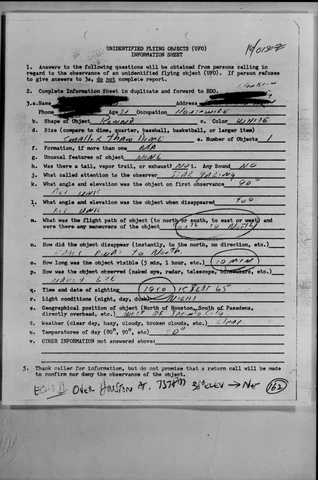 UNIDENTIFIED FLYING OBJECTS (UFO)
INFORMATION SHEET
1. Answers to the following questions will be obtained from persons calling in
regard to the observance of an unidentified flying object (UFO). If person refuses
to give answers to 3a, do not complete report.
2. Complete Information Sheet in duplicate and forward to BDO.
3.a. Name Address
Phone Age Occupation HOUSEWIFE
b. Shape of Object ROUND c. Color WHITE
d. Size (compare to dime, quarter, baseball, basketball, or larger item)
SMALLER THAN DIME e. Number of Objects 1
f. Formation, if more than one NA
g. Unusual features of object NONE
h. Was there a tail, vapor trail, or exhaust NO i. Any Sound NO
j. What called attention to the observer STAR GAZING
k. What angle and elevation was the object on first observance 90°
UNK
l. What angle and elevation was the object when disappeared
UNK
m. What was the flight path of object (to north or south, to east or west) and
were there any maneuvers of the object TO NORTH
n. How did the object disappear (instantly, to the north, no direction, etc.)
TO NORTH
o. How long was the object visible (5 min, 1 hour, etc.) 10 MIN
p. How was the object observed (naked eye, radar, telescope, binoculars, etc.)
NAKED EYE
q. Time and date of sighting 1950 15 SEPT 65
r. Light conditions (night, day, dusk) NIGHT
s. Geographical position of object (North of Houston, South of Pasadena,
directly overhead, etc.) WEST OF
t. Weather (clear day, hazy, cloudy, broken clouds, etc.) CLEAR
u. Temperatures of day (80°, 90°, etc)
v. OTHER INFORMATION not answered above:
3. Thank caller for information, but do not promise that a return call will be made
to confirm nor deny the observance of the object.
ECHO II OVER HOUSTON AT 38° ELEV → NE 162